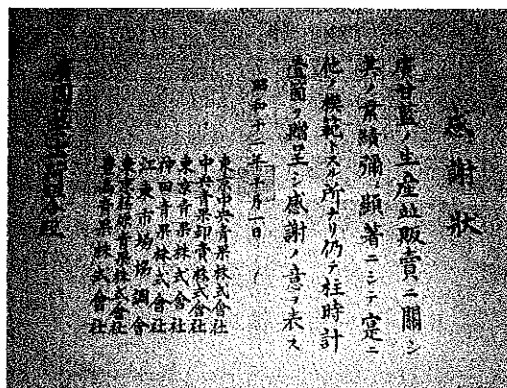 感謝狀
甘藍ノ生産並販賣ニ關シ
其ノ業績彌顯著ニシテ寔ニ
他ノ模範トスル所ナリ仍テ柱時計
壹箇ヲ贈呈シ感謝ノ意ヲ表ス
昭和十二年十月一日
東京中央青果株式會社
中央青果卸賣株式會社
東京青果株式會社
仲田青果株式會社
江東市場協調會
東京青果株式會社
豊島青果株式會社